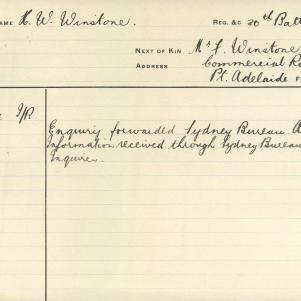 NAME H. W. Winstone. REG. &c 20th Batt
NEXT OF KIN Mr F. Winstone
ADDRESS Commercial Ro
Pt. Adelaide
Enquiry forwarded Sydney Bureau. A
Information received through Sydney Bureau
Inquirer.